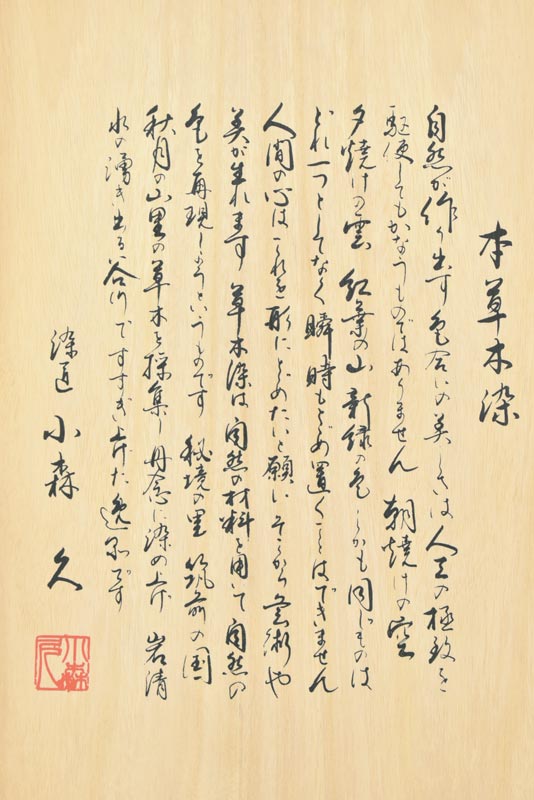 本草木染
自然が作り出す色合いの美しさは 人工の極致を
駆使してもかなうものではありません 朝焼けの空
夕焼けの雲 紅葉の山 新緑の色 しかも同じものは
どれ一つとしてなく 瞬時もとどめ置くことはできません
人間の心はこれを形にとどめたいと願い そこから芸術や
美が生れます 草木染は 自然の材料を用いて 自然の
色を再現しようというものです 秘境の里 筑前の国
秋月の山里の草木を採集し 丹念に染め上げ 岩清
水の湧き出る谷川ですすぎ上げた逸品です
染匠 小森 久
小森久